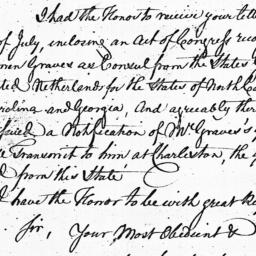 I had the Honor to receive your lett
of July, inclosing an Act of Congress reco
mon Graves as Consul from the States
ted Netherlands for the States of North Ca
rolina and Georgia And agreably ther
a Notification of Mr Graves's
Transmit to him at Charleston, the
d from this State
I have the Honor to be with great Re
Sir, Your Most Obedient &